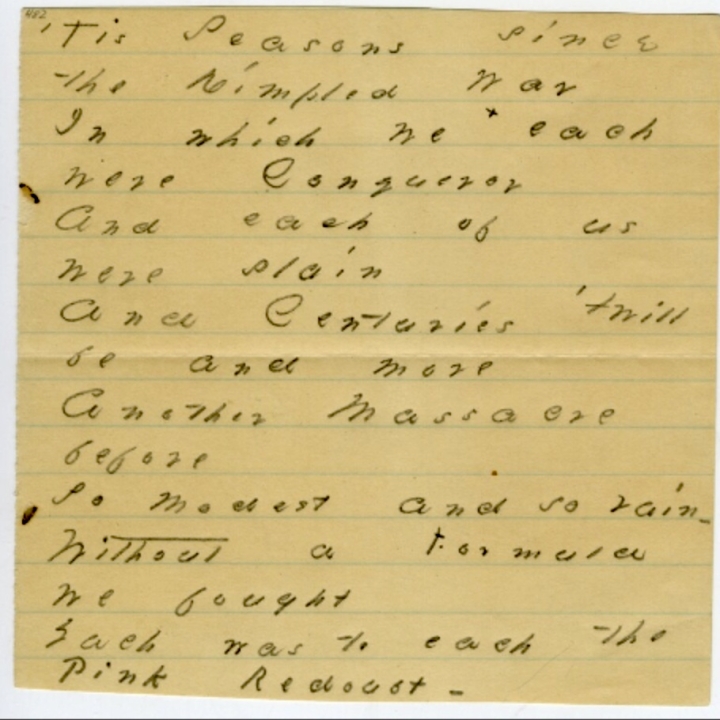 482
'Tis Seasons since
the Dimpled War
In which we + each
were Conqueror
And each of us
were slain
And Centuries 'twill
be and more
Another Massacre
before
So modest and so vain_
Without a Formula
we fought
Each was to each the
Pink Redoubt _